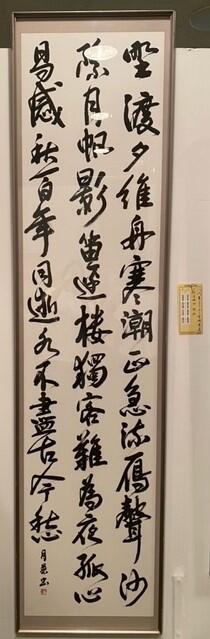 埜渡夕維舟寒潮正急流鴈聲沙
際月帆影笛邊樓獨客難為夜孤心
易感秋百年同逝水不盡古今愁
月書